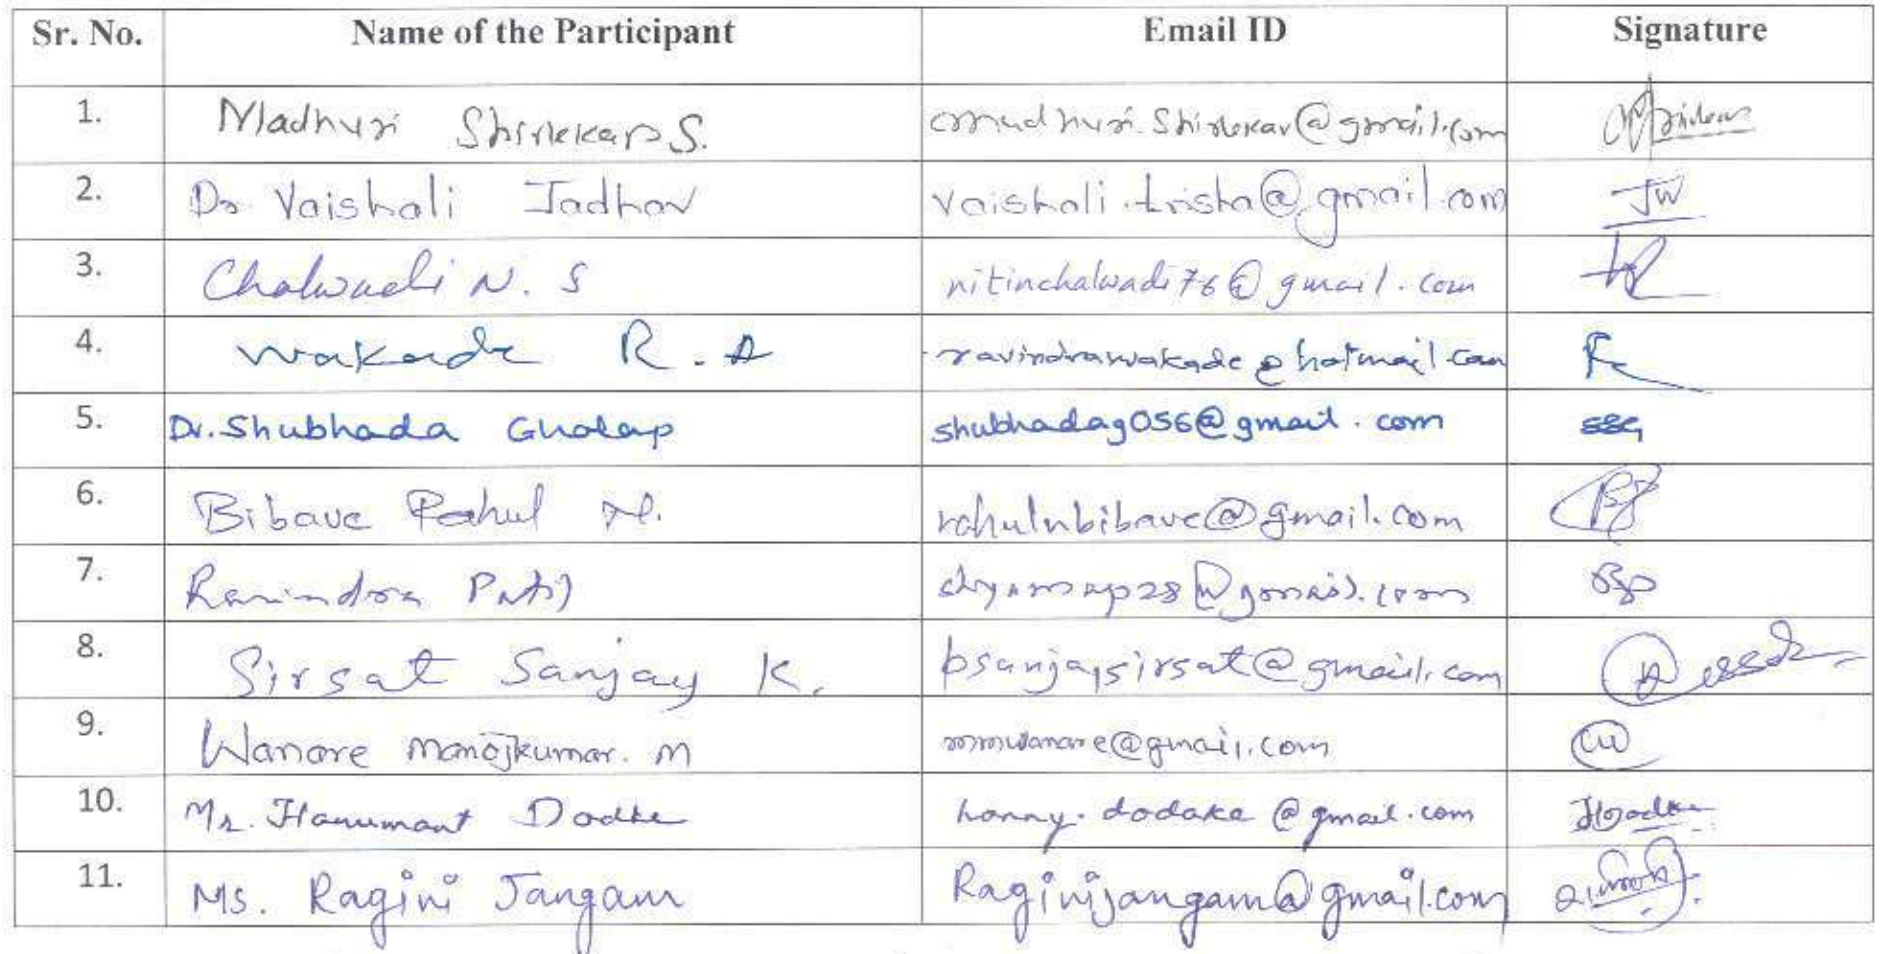 Sr. No. Name of the Participant Email ID Signature
1. Madhuri Shirlekar S. madhuri.shirlekar@gmail.com
2. Dr. Vaishali Jadhav vaishali.trisha@gmail.com JW
3. Chalwadi N. S nitinchalwadi76@gmail.com
4. Wakade R. A ravindrawakade@hotmail.com
5. Dr. Shubhada Gholap shubhadag056@gmail.com SSG
6. Bibave Rahul N. rahulnbibave@gmail.com
7. Ravindra Patil
8. Sirsat Sanjay K. bsanjaysirsat@gmail.com
9. Wanare Manojkumar. M mmwanare@gmail.com
10. Mr. Hanumant Dodke hanny.dodake@gmail.com HDodke
11. Ms. Ragini Jangam Raginijangam@gmail.com